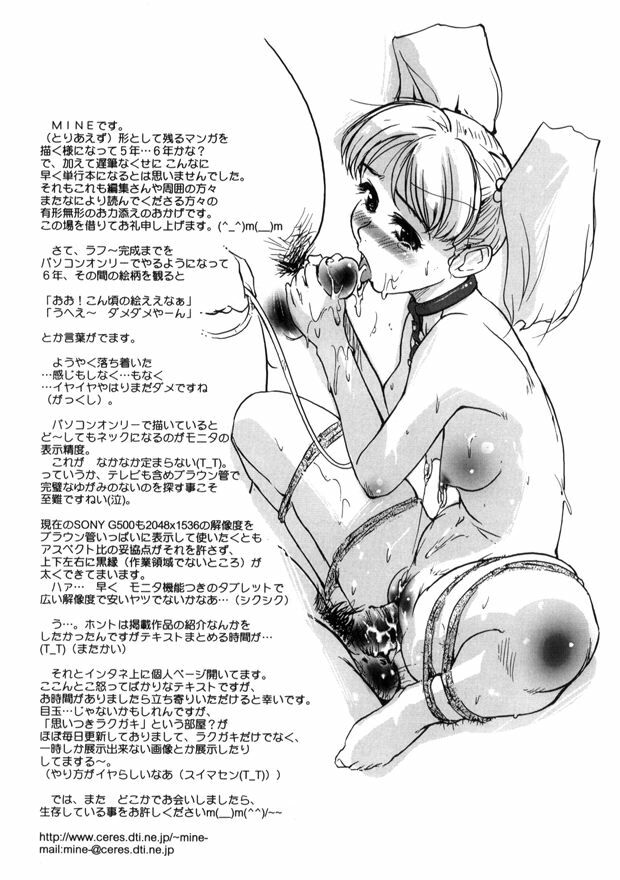 MINEです。
(とりあえず)形として残るマンガを
描く様になって5年…6年かな?
で、加えて遅筆なくせに こんなに
早く単行本になるとは思いませんでした。
それもこれも編集さんや周囲の方々
またなにより読んでくださる方々の
有形無形のお力添えのおかげです。
この場を借りてお礼申し上げます。(^_^)m(__)m
さて、ラフ〜完成までを
パソコンオンリーでやるようになって
6年、その間の絵柄を観ると
「おお!こん頃の絵ええなぁ」
「うへえ〜 ダメダメやーん」
とか言葉がでます。
ようやく落ち着いた
…感じもしなく…もなく
…イヤイヤやはりまだダメですね
(がっくし)。
パソコンオンリーで描いていると
ど〜してもネックになるのがモニタの
表示精度。
これが なかなか定まらない(T_T)。
っていうか、テレビも含めブラウン管で
完璧なゆがみのないのを探す事こそ
至難ですねい(泣)。
現在のSONY G500も2048x1536の解像度を
ブラウン管いっぱいに表示して使いたくとも
アスペクト比の妥協点がそれを許さず、
上下左右に黒縁(作業領域でないところ)が
太くできてまいます。
ハァ… 早く モニタ機能つきのタブレットで
広い解像度で安いヤツでないかなあ…(シクシク)
う…。ホントは掲載作品の紹介なんかを
したかったんですがテキストまとめる時間が…
(T_T)(またかい)
それとインタネ上に個人ページ開いてます。
ここんとこ怒ってばかりなテキストですが、
お時間がありましたら立ち寄りいただけると幸いです。
目玉…じゃないかもしれんですが、
「思いつきラクガキ」という部屋?が
ほぼ毎日更新しておりまして、ラクガキだけでなく、
一時しか展示出来ない画像とか展示したり
してまする〜。
(やり方がイヤらしいなあ(スイマセン(T_T)))
では、また どこかでお会いしましたら、
生存している事をお許しくださいm(__)m(^^)/~~
http://www.ceres.dti.ne.jp/~mine-
mail:mine-@ceres.dti.ne.jp